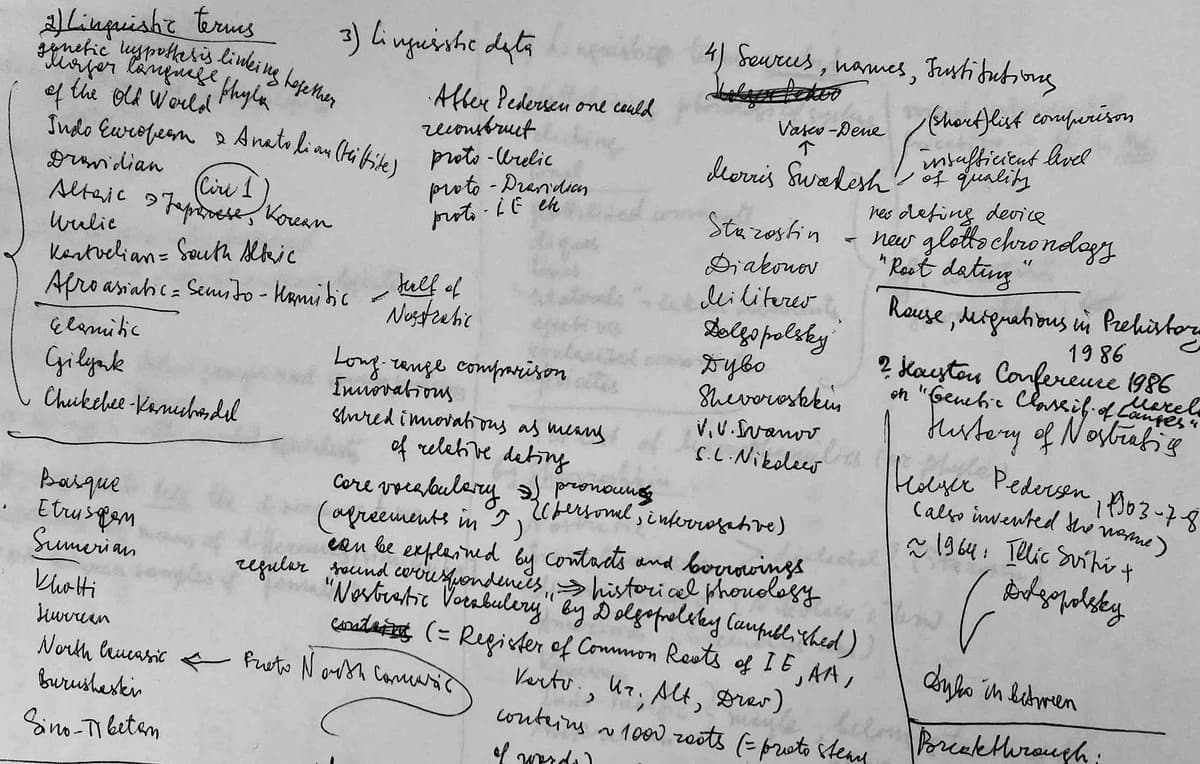 2) Linguistic terms
genetic hypothesis linking together
Major language phyla
of the Old World
Indo European > Anatolian (Hittite)
Dravidian
Altaic > Japanese, Korean
Uralic
Kartvelian = South Altaic
Afroasiatic = Semito-Hamitic - half of
Nostratic
Elamitic
Gilyak
Chukchee-Kamchadel
Basque
Etruscan
Sumerian
Khatti
Hurrean
North Caucasic ← Proto North Caucasic
Burushaski
Sino-Tibetan
3) linguistic data
After Pedersen one could
reconstruct
proto-Uralic
proto-Dravidian
proto-IE etc
Long-range comparison
Innovations
shared innovations as means
of relative dating
Core vocabulary → } pronouns
(agreements in ↑) (personal, interrogative)
can be explained by contacts and borrowings
regular sound correspondences, ⇒ historical phonology
"Nostratic Vocabulary" by Dolgopolsky (unpublished)
(= Register of Common Roots of IE, AA,
Kartv., Ur, Alt, Drav)
contains ~ 1000 roots (= proto stems
of words)
4) Sources, names, Institutions
Vasco-Dene
↑
Morris Swadesh
(short) list comparison
insufficient level
of quality
Starostin - new glottochronology
"Root dating"
Diakonov
Militarev
Dolgopolsky
Dybo
Shevoroshkin
V.V. Ivanov
S.L. Nikolaev
Rouse, Migrations in Prehistory
1986
? Houston Conference 1986
March
on "Genetic Classif. of Langes"
History of Nostratics
Holger Pedersen, 1903-7-8
(also invented the name)
≈ 1964: Illic Svityc +
Dolgopolsky
Dybo in between
Breakthrough: